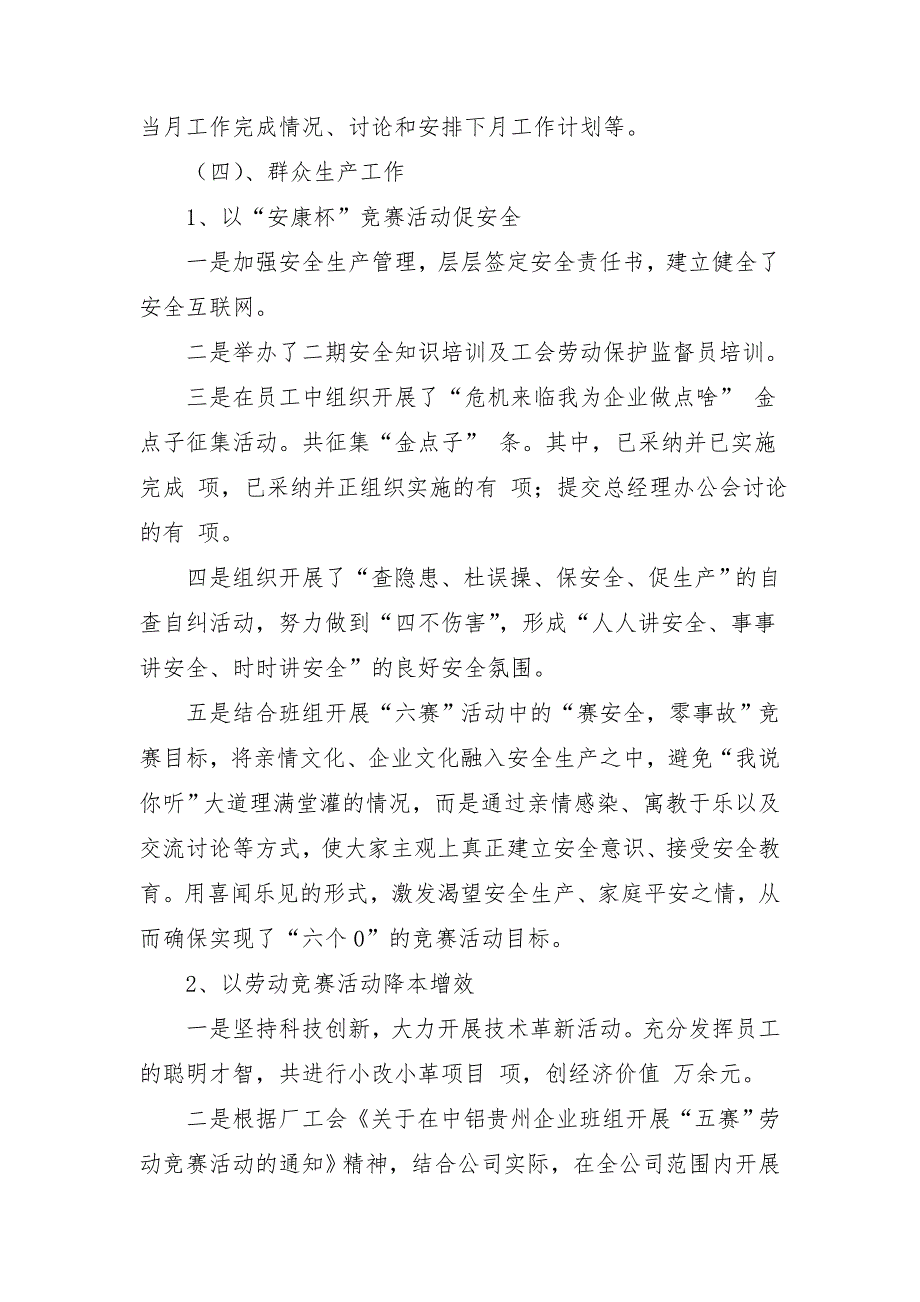 当月工作完成情况、讨论和安排下月工作计划等。
（四）、群众生产工作
1、以“安康杯”竞赛活动促安全
一是加强安全生产管理，层层签定安全责任书，建立健全了
安全互联网。
二是举办了二期安全知识培训及工会劳动保护监督员培训。
三是在员工中组织开展了“危机来临我为企业做点啥” 金
点子征集活动。共征集“金点子” 条。其中，已采纳并已实施
完成 项，已采纳并正组织实施的有 项；提交总经理办公会讨论
的有 项。
四是组织开展了“查隐患、杜误操、保安全、促生产”的自
查自纠活动，努力做到“四不伤害”，形成“人人讲安全、事事
讲安全、时时讲安全”的良好安全氛围。
五是结合班组开展“六赛”活动中的“赛安全，零事故”竞
赛目标，将亲情文化、企业文化融入安全生产之中，避免“我说
你听”大道理满堂灌的情况，而是通过亲情感染、寓教于乐以及
交流讨论等方式，使大家主观上真正建立安全意识、接受安全教
育。用喜闻乐见的形式，激发渴望安全生产、家庭平安之情，从
而确保实现了“六个0”的竞赛活动目标。
2、以劳动竞赛活动降本增效
一是坚持科技创新，大力开展技术革新活动。充分发挥员工
的聪明才智，共进行小改小革项目 项，创经济价值 万余元。
二是根据厂工会《关于在中铝贵州企业班组开展“五赛”劳
动竞赛活动的通知》精神，结合公司实际，在全公司范围内开展